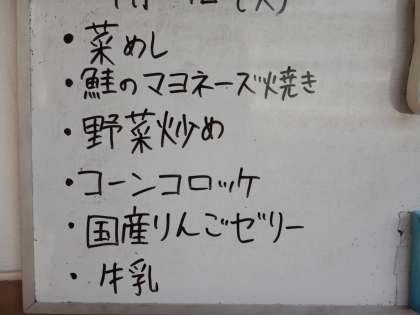 ・菜めし
・鮭のマヨネーズ焼き
・野菜炒め
・コーンコロッケ
・国産りんごゼリー
・牛乳